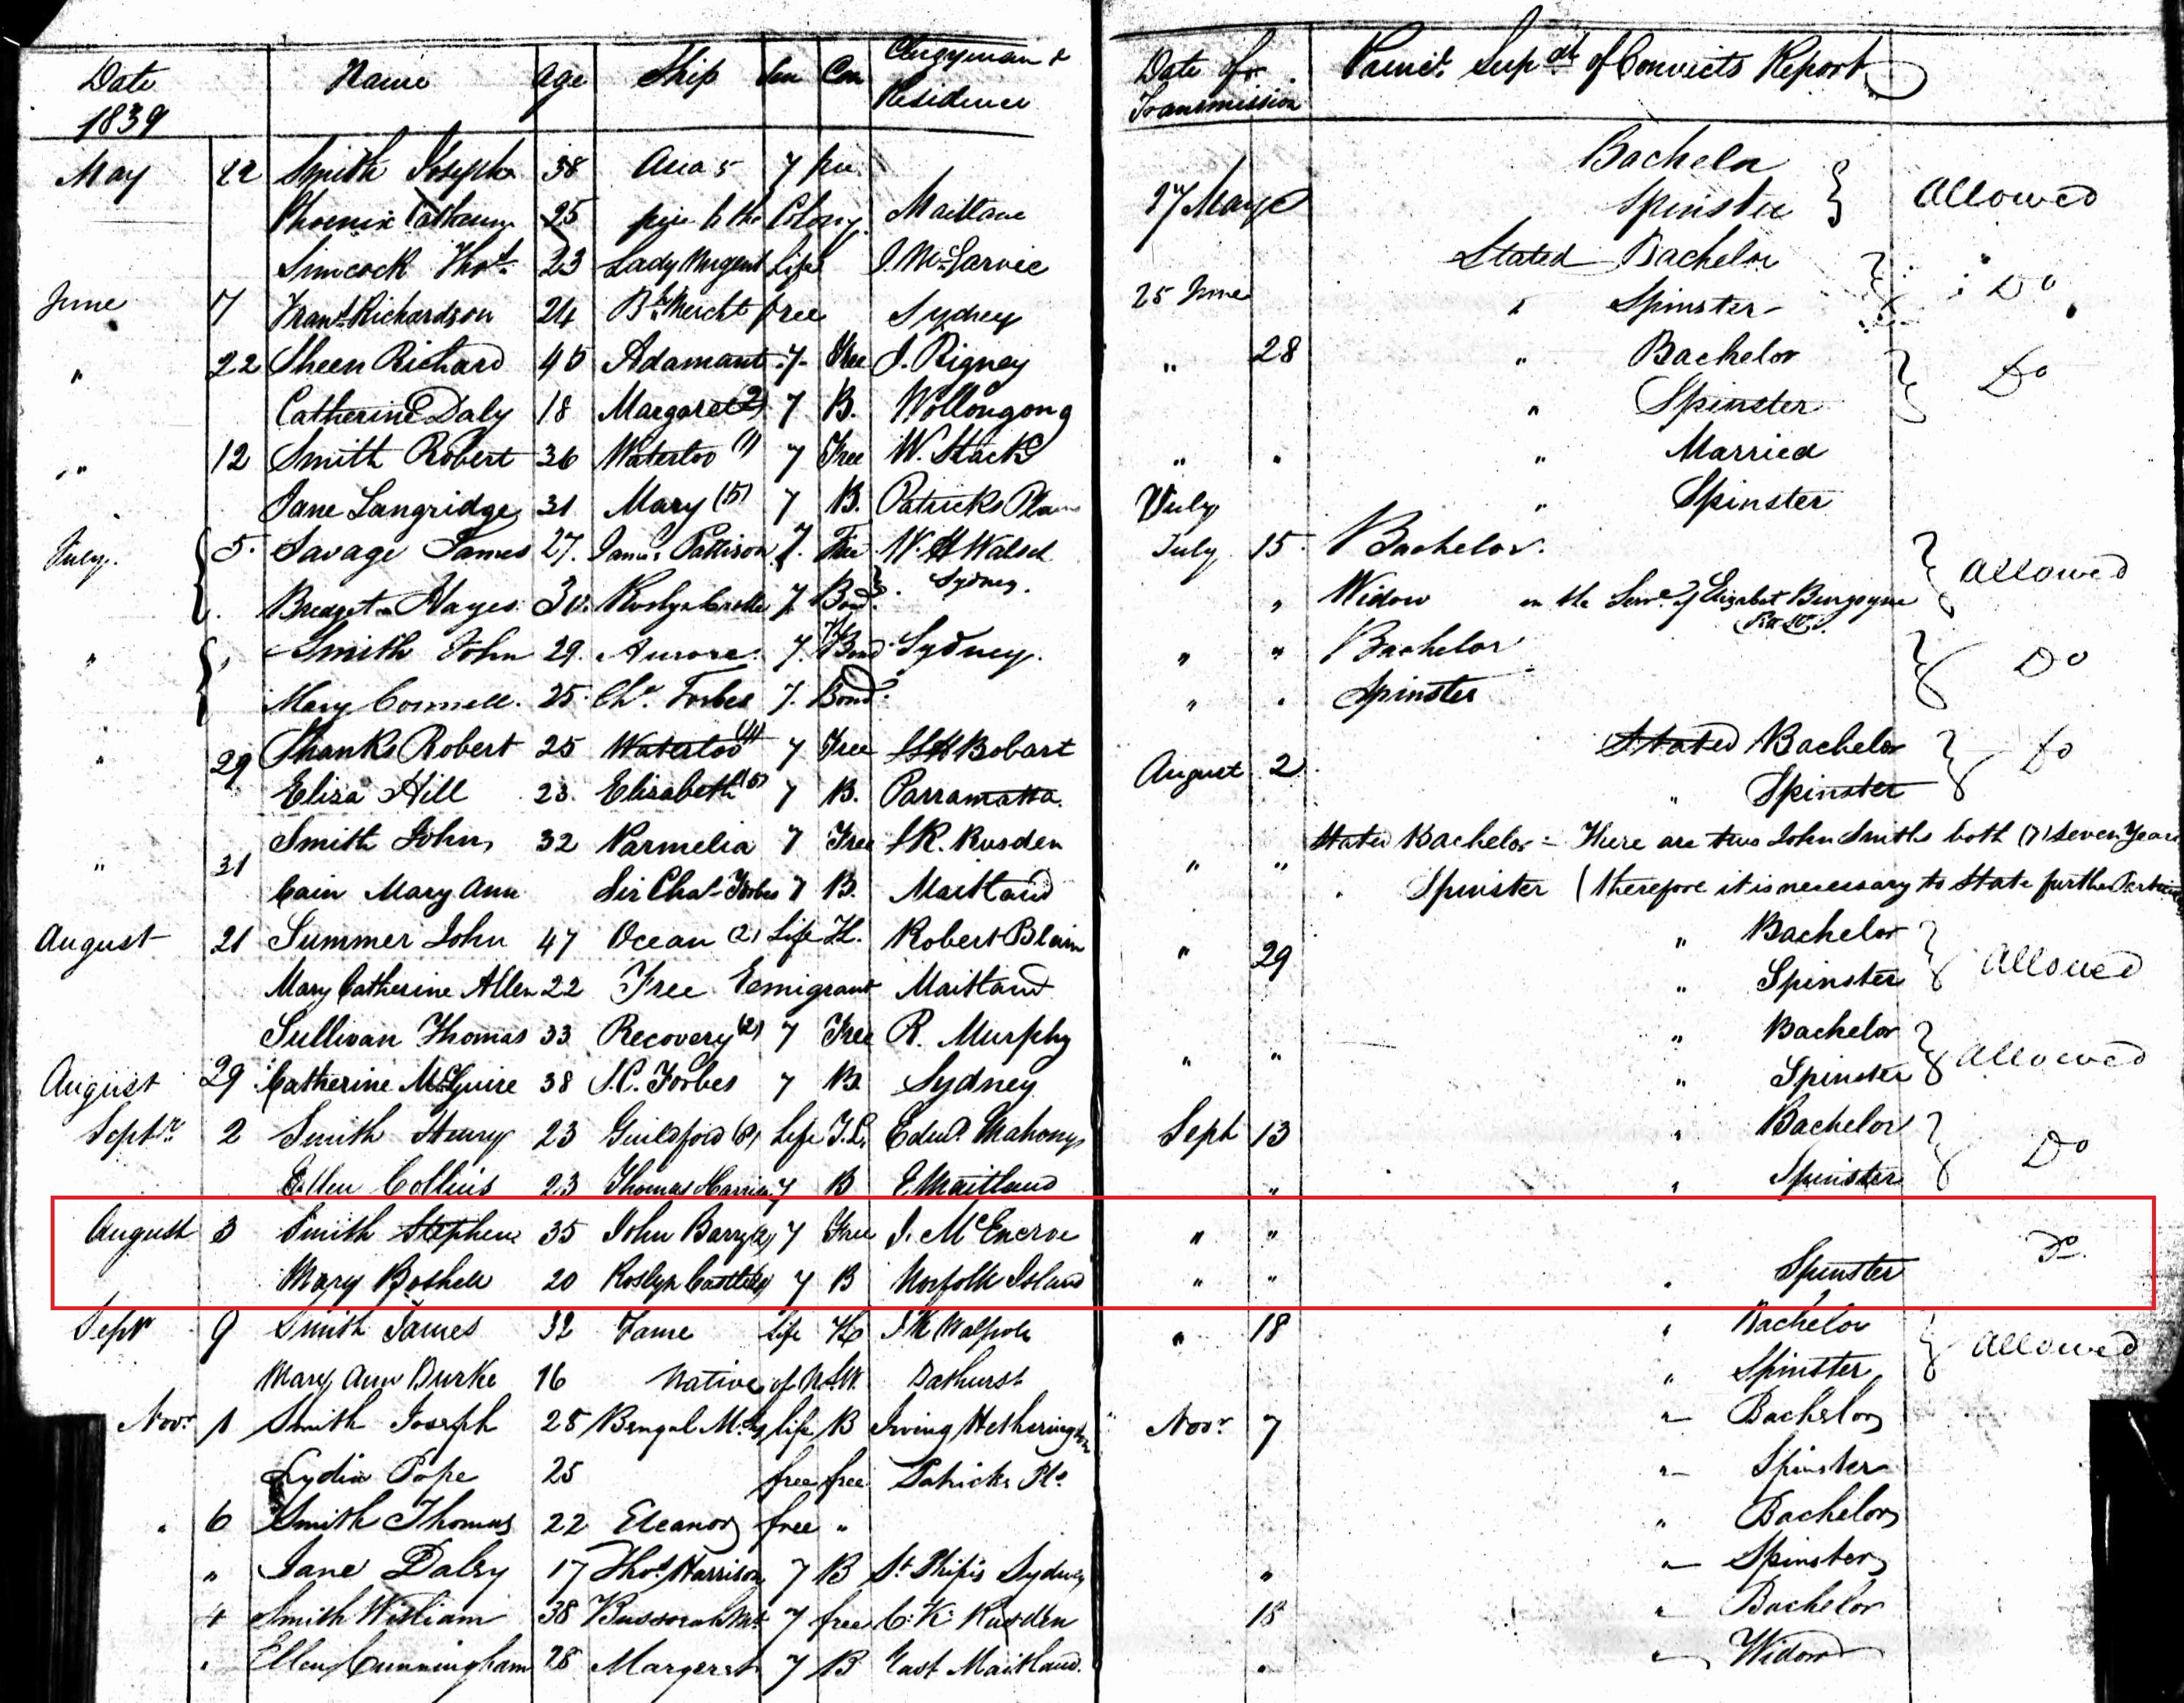 Date Name Age Ship Sen Con Clergyman & Date of Princl. Supdt of Convicts Report
1839 Residence Transmission
May 22 Smith Joseph 38 Asia 5 7 Bachelor
Phoenix 25 free to the Colony Maitland 27 May Spinster Allowed
Simcock Thos. 23 Lady Nugent Life J. McGarvie Stated Bachelor
June 7 Frans. Richardson 24 Bh. Mercht free Sydney 25 June " Spinster Do
" 22 Sheen Richard 45 Adamant 7 Free J. Rigney " 28 " Bachelor Do
Catherine Daly 18 Margaret (2) 7 B. Wollongong " Spinster
" 12 Smith Robert 36 Waterloo (1) 7 Free W. Stack " " " Married
Jane Langridge 31 Mary (5) 7 B. Patricks Plains July " Spinster
July 5. Savage James 27. James Pattison 7. Free W. H Walsh July 15. Bachelor. Allowed
Sydney.
Bridget Hayes. 30. Roslyn Castle 7. Bond. " Widow in the Serve. of Elizabet Burgoyne
" " Smith John 29. Aurora. 7. Bond Sydney. " " Bachelor Do
Mary Connell. 25. Chs. Forbes 7. Bond. " " Spinster
" 29 Shanks Robert 25 Waterloo 7 Free H H Bobart August 2. Stated Bachelor Do
Eliza Hill 23. Elizabeth (5) 7 B. Parramatta. " Spinster
" 31 Smith John, 32 Parmelia 7 Free K. Rusden " " Stated Bachelor = There are two John Smiths both (7) Seven Years
Cain Mary Ann Sir Chas. Forbes 7 B. Maitland " Spinster (therefore it is necessary to State further
August 21 Summer John 47 Ocean (2) Life Robert Blain " 29 " Bachelor Allowed
Mary Catherine Allen 22 Free Eemigrant Maitland " Spinster
Sullivan Thomas 33 Recovery (2) 7 Free R. Murphy " " " Bachelor Allowed
August 29 Catherine McGuire 38 S.C. Forbes 7 B. Sydney " Spinster
Septr. 2 Smith Henry 23 Guildford Life T.L. Edwd. Mahony Sept 13 " Bachelor Do
Ellen Collins 23 Thomas Harrison 7 B E Maitland " " Spinster
August 3 Smith Stephen 35 John Barry (2) 7 Free J. McEncroe " " Do.
Mary Boshell 20 Roslyn Castle 7 B Norfolk Island " " " Spinster
Septr 9 Smith James 32 Fame Life J K Walpole " 18 " Bachelor Allowed
Mary Ann Burke 16 Native of N.S.W. Bathurst " Spinster
Novr. 1 Smith Joseph 28 Bengal life B Irving Hetherington Novr. 7 " Bachelor
Lydia Pope 25 free free Patricks Pls. " Spinster
" 6 Smith Thomas 22 Eleanor free " " Bachelor
" Jane Daley 17 Thos. Harrison 7 B St. Philips Sydney " " Spinster
4 Smith William 38 Bussorah 7 free C. K. Rusden 18 " Bachelor
" Ellen Cunningham 28 Margeret 7 B East Maitland. " " Widow